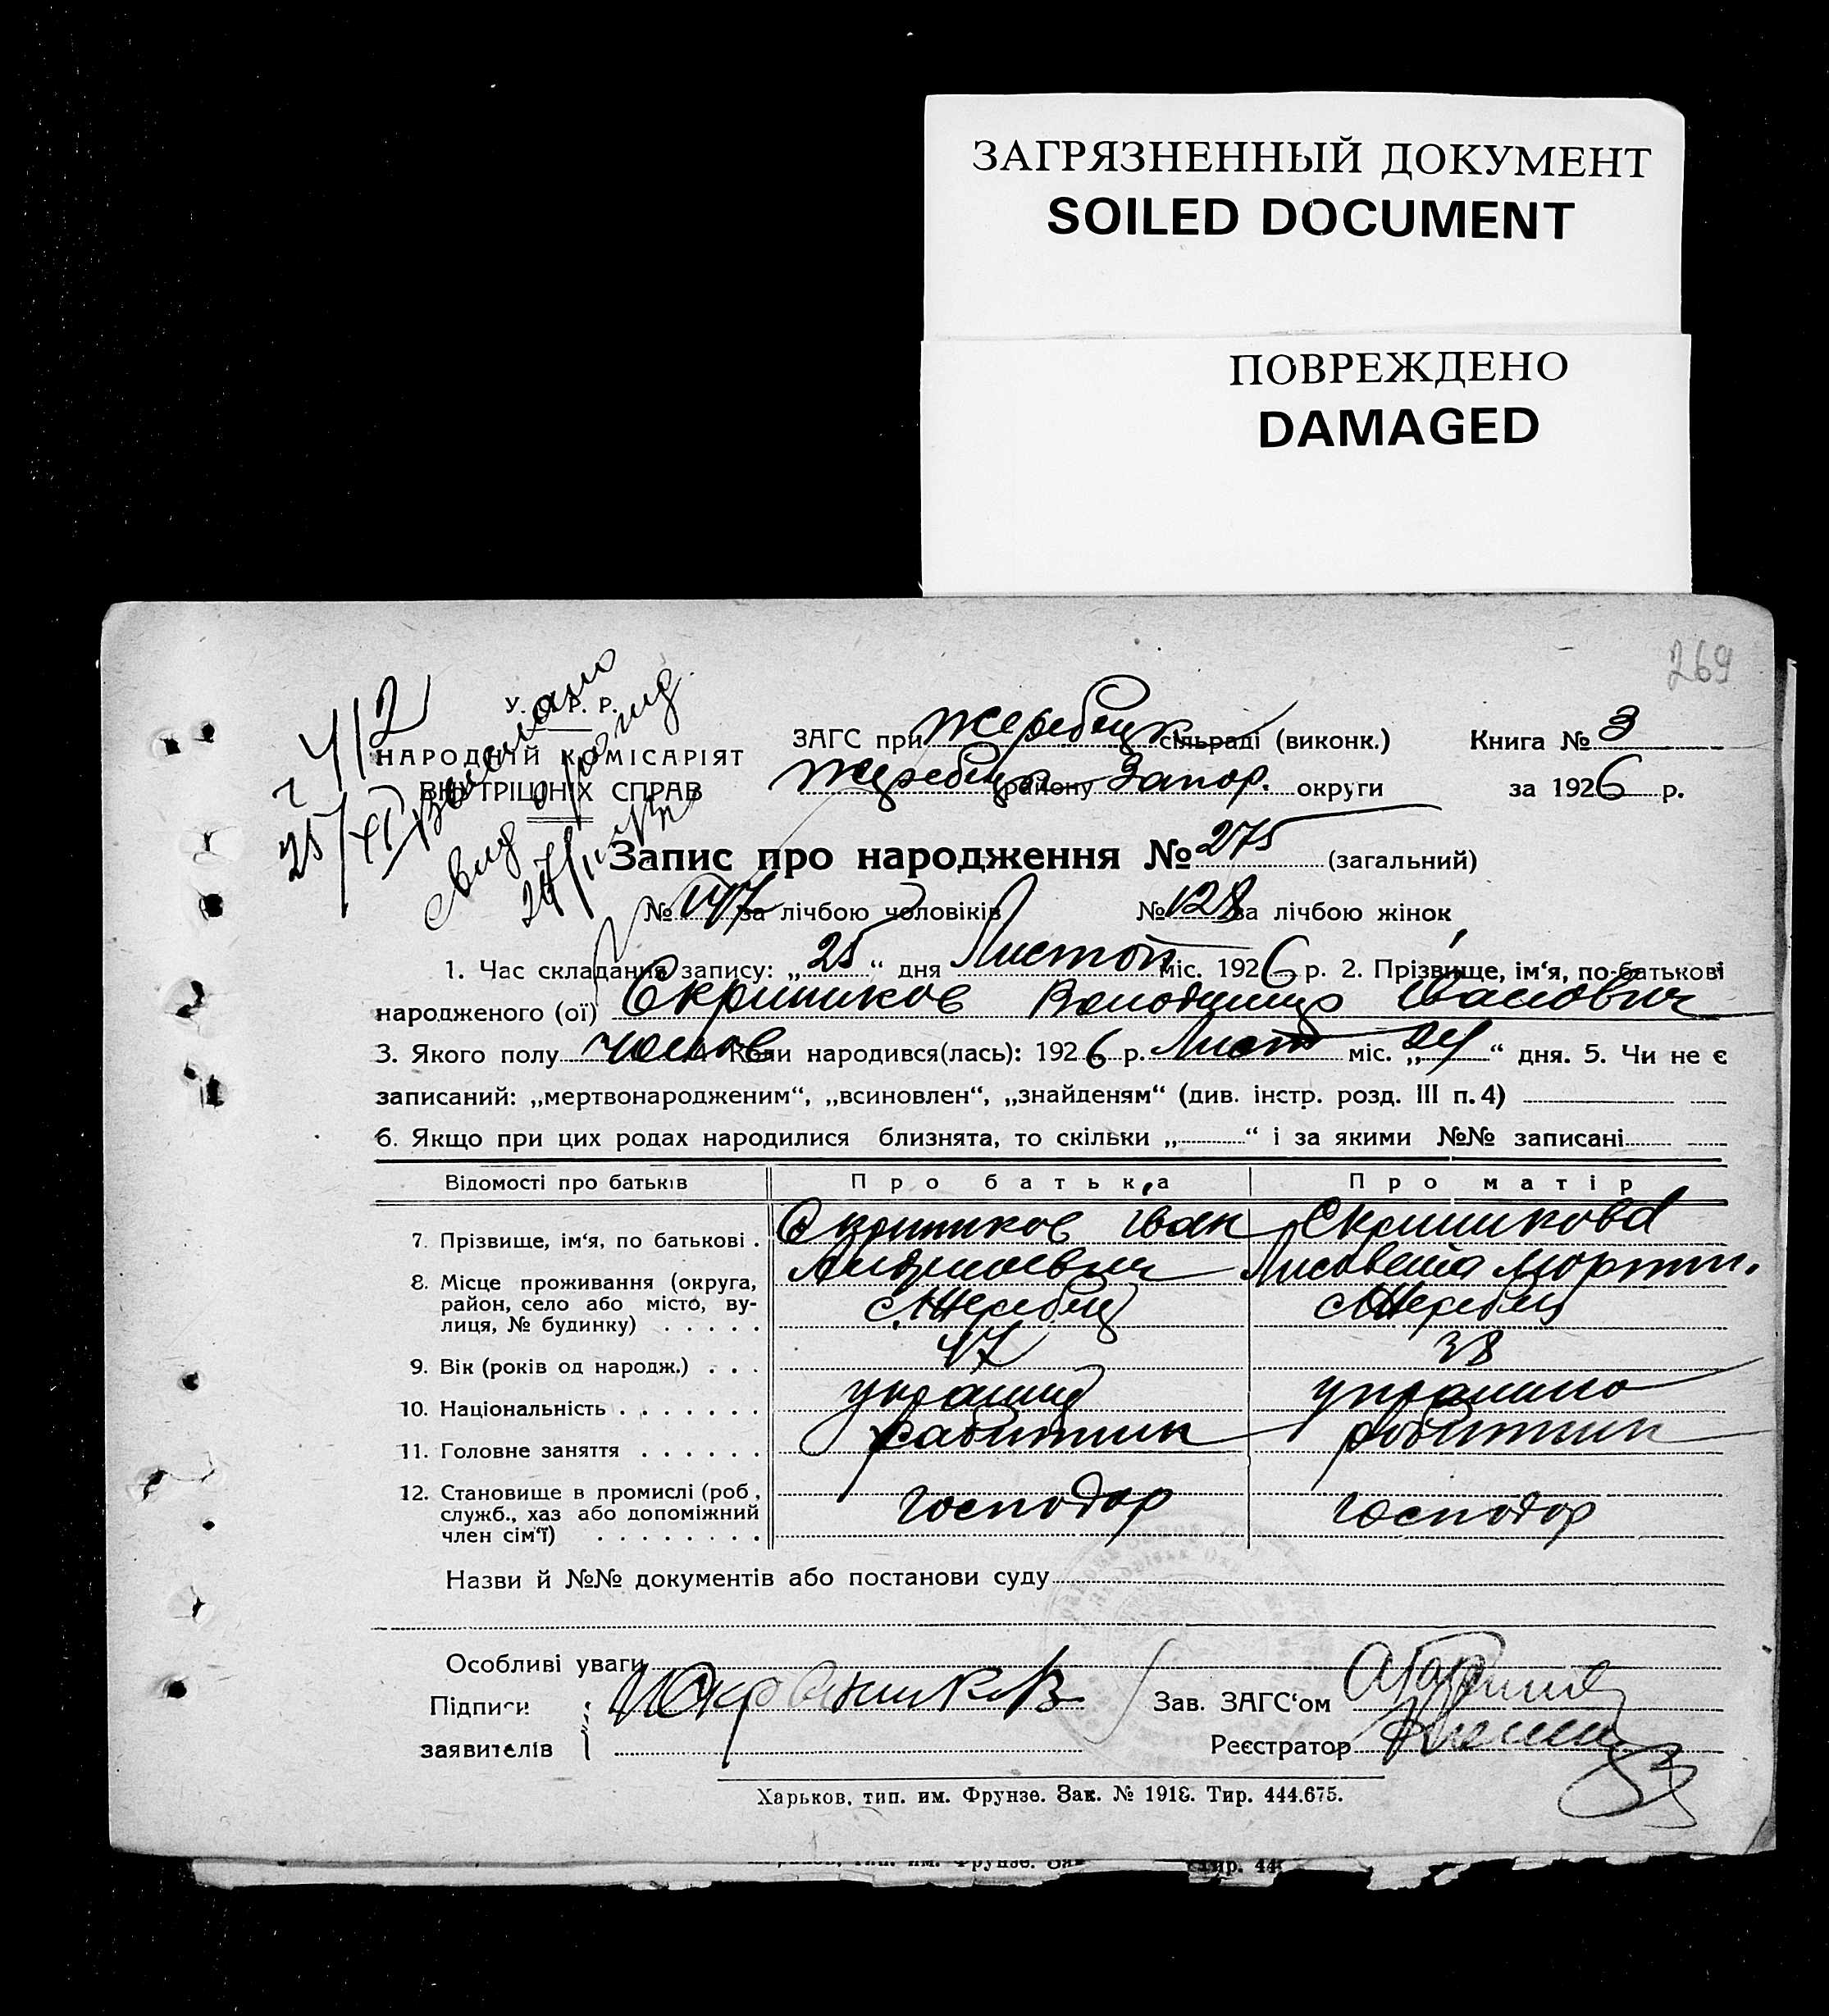 ЗАГРЯЗНЕННЫЙ ДОКУМЕНТ
SOILED DOCUMENT
ПОВРЕЖДЕНО
DAMAGED
269
412
У. Р. Р.
НАРОДНІЙ КОМІСАРІЯТ
ВНУТРІШНІХ СПРАВ
ЗАГС при Жеребецк сільраді (виконк.) Книга № 3
Жеребецк району Запор. округи за 1926 р.
Запис про народження № 275 (загальний)
№ 147 за лічбою чоловіків № 128 за лічбою жінок
1. Час складання запису: „25“ дня Листоп міс. 1926 р. 2. Прізвище, ім‘я, по-батькові
народженого (ої) Скриников Володимир Іванович
3. Якого полу чолов 4. Коли народився(лась): 1926 р. Лист міс. „24“ дня. 5. Чи не є
записаний: „мертвонародженим“, „всиновлен“, „знайденям“ (див. інстр. розд. III п. 4)
6. Якщо при цих родах народилися близнята, то скільки „ “ і за якими №№ записані
Відомості про батьків Про батька Про матір
7. Прізвище, ім‘я, по батькові . Скриников Іван Скриникова
Андриевич Лисавета Мортин.
8. Місце проживання (округа, район, село або місто, вулиця, № будинку) . . . . . с. Жеребец с. Жеребец
9. Вік (років од народж.) . . . 47 38
10. Національність . . . . . . . україниц українка
11. Головне заняття . . . . . . рабитник робитник
12. Становище в промислі (роб., служб., хаз або допоміжний член сім‘ї) . . . . . . . . господар господар
Назви й №№ документів або постанови суду
Особливі уваги
Підписи Скрыников Зав. ЗАГС‘ом
заявителів Реєстратор
Харьков, тип. им. Фрунзе. Зак. № 1918. Тир. 444.675.